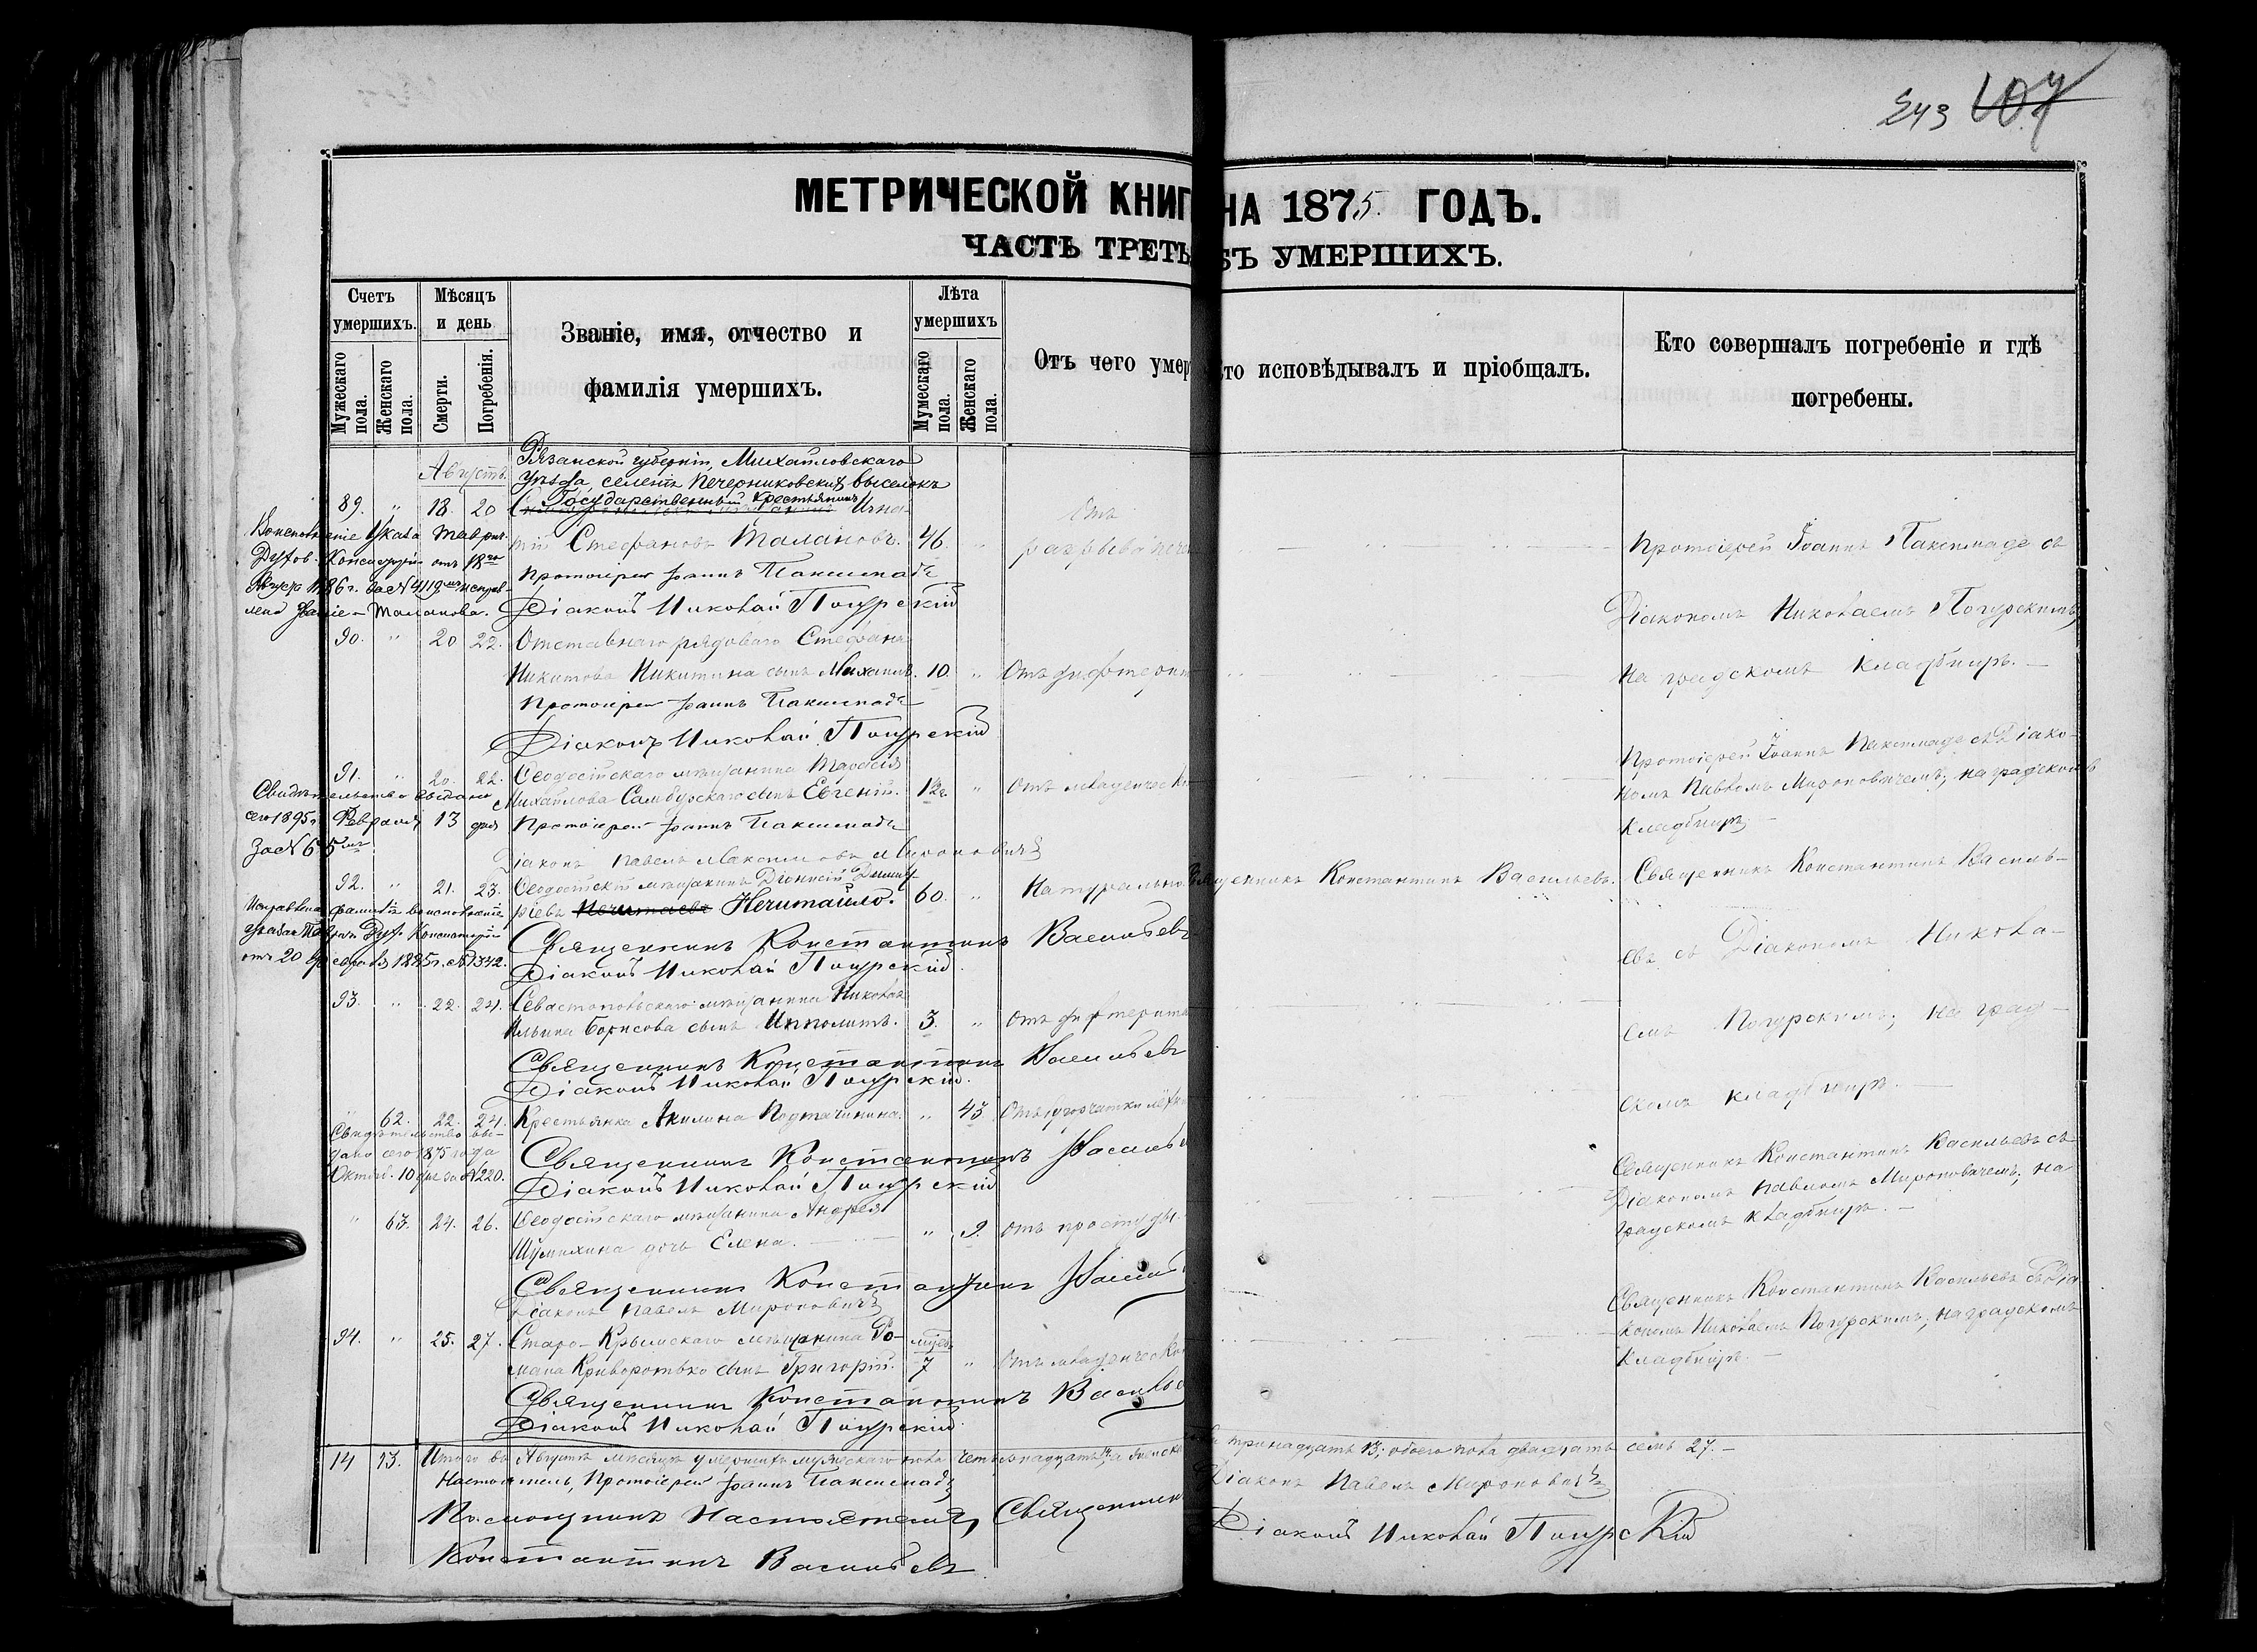 243 107
МЕТРИЧЕСКОЙ КНИГ НА 1875 ГОДЪ.
ЧАСТЬ ТРЕТЬ БЪ УМЕРШИХЪ.
Счетъ умершихъ.
Мужескаго пола.
Женскаго пола.
Мѣсяцъ и день
Смерти.
Погребенія.
Званіе, имя, отчество и
фамилія умершихъ.
Лѣта умершихъ
Мужескаго пола.
Женскаго пола.
Отъ чего умер
то исповѣдывалъ и пріобщалъ.
Кто совершалъ погребеніе и гдѣ
погребены.
Августъ.
Рязанской губерніи, Михайловскаго
уѣзда, селенія Печерниковскихъ выселокъ
Государственный крестьянинъ
89. " 18. 20 Игна-
тій Стефановъ Талановъ. 46. Отъ
разрыва пече
Протоіерей Іоаннъ Пакснмаде съ
Діакономъ Николаемъ Погурскимъ,
На градскомъ кладбищѣ. —
Во исполненіе Указа Таврич.
Духов. Консисторіи отъ 18го
1886 г. за № 4119 исправ-
лено званіе Таланова.
Протоіерей Іоаннъ Пакснмаде
Діаконъ Николай Погурскій
90. " 20 22. Отставнаго рядоваго Стефана
Никитова Никитина сынъ Михаилъ. 10. " Отъ дифтерит
Протоіерей Іоаннъ Пакснмаде
Діаконъ Николай Погурскій
91. " 20. 22. Ѳеодосійскаго мѣщанина Тарасія
Михайлова Самбурскаго сынъ Евгеній. 12. " Отъ младенческо
Протоіерей Іоаннъ Пакснмаде съ Діако-
номъ Павломъ Мироновичемъ, на градскомъ
кладбищѣ. —
Свидѣтельство выдано
сего 1895 г. Февраля 13 дня
За № 65
Протоіерей Іоаннъ Пакснмаде
Діаконъ Павелъ Мироновичъ
92. " 21. 23. Ѳеодосійскій мѣщанинъ Діонисій Димит-
ріевъ Нечитаевъ Нечитайло. 60. " Натурально
Священникъ Константинъ Васильевъ.
Священникъ Константинъ Василь-
евъ съ Діакономъ Никола-
емъ Погурскимъ, на град-
скомъ кладбищѣ. —
Исправлена фамилія во исполненіе
указа Тавр. Дух. Консисторіи
отъ 20 1885 г. № 1342.
Священникъ Константинъ Васильевъ
Діаконъ Николай Погурскій.
93. " 22. 24. Севастопольскаго мѣщанина Николая
Ильина Борисова сынъ Ипполитъ. 3. " Отъ дифтерита
Священникъ Константинъ Васильевъ
Діаконъ Николай Погурскій.
" 62. 22. 24. Крестьянка Акилина Подтачинина. " 43 Отъ чахотки
Свидѣтельство вы-
дано сего 1875 года
Октяб. 10 дня за № 220.
Священникъ Константинъ Василье
Діаконъ Николай Погурскій
Священникъ Константинъ Васильевъ съ
Діакономъ Павломъ Мироновичемъ, на
градскомъ кладбищѣ. —
" 63. 24. 26. Ѳеодосійскаго мѣщанина Андрея
Шумихина дочь Елена. " 9. Отъ простуды.
Священникъ Константинъ Васил
Діаконъ Павелъ Мироновичъ
Священникъ Константинъ Васильевъ съ Діа-
кономъ Николаемъ Погурскимъ, на градскомъ
кладбищѣ. —
94. " 25. 27. Старо-Крымскаго мѣщанина Ро- мѣсяц.
мана Криворотько сынъ Григорій. 7 " Отъ младенческо
Священникъ Константинъ Василье
Діаконъ Николай Погурскій.
14 13. Итого въ Августѣ мѣсяцѣ умершихъ мужескаго пола четырнадцать, а женска тринадцать 13; обоего пола двадцать семь 27. —
Настоятель, Протоіерей Іоаннъ Пакснмаде
Діаконъ Павелъ Мироновичъ
Помощникъ Настоятеля, Священник
Константинъ Васильевъ
Діаконъ Николай Погурскій